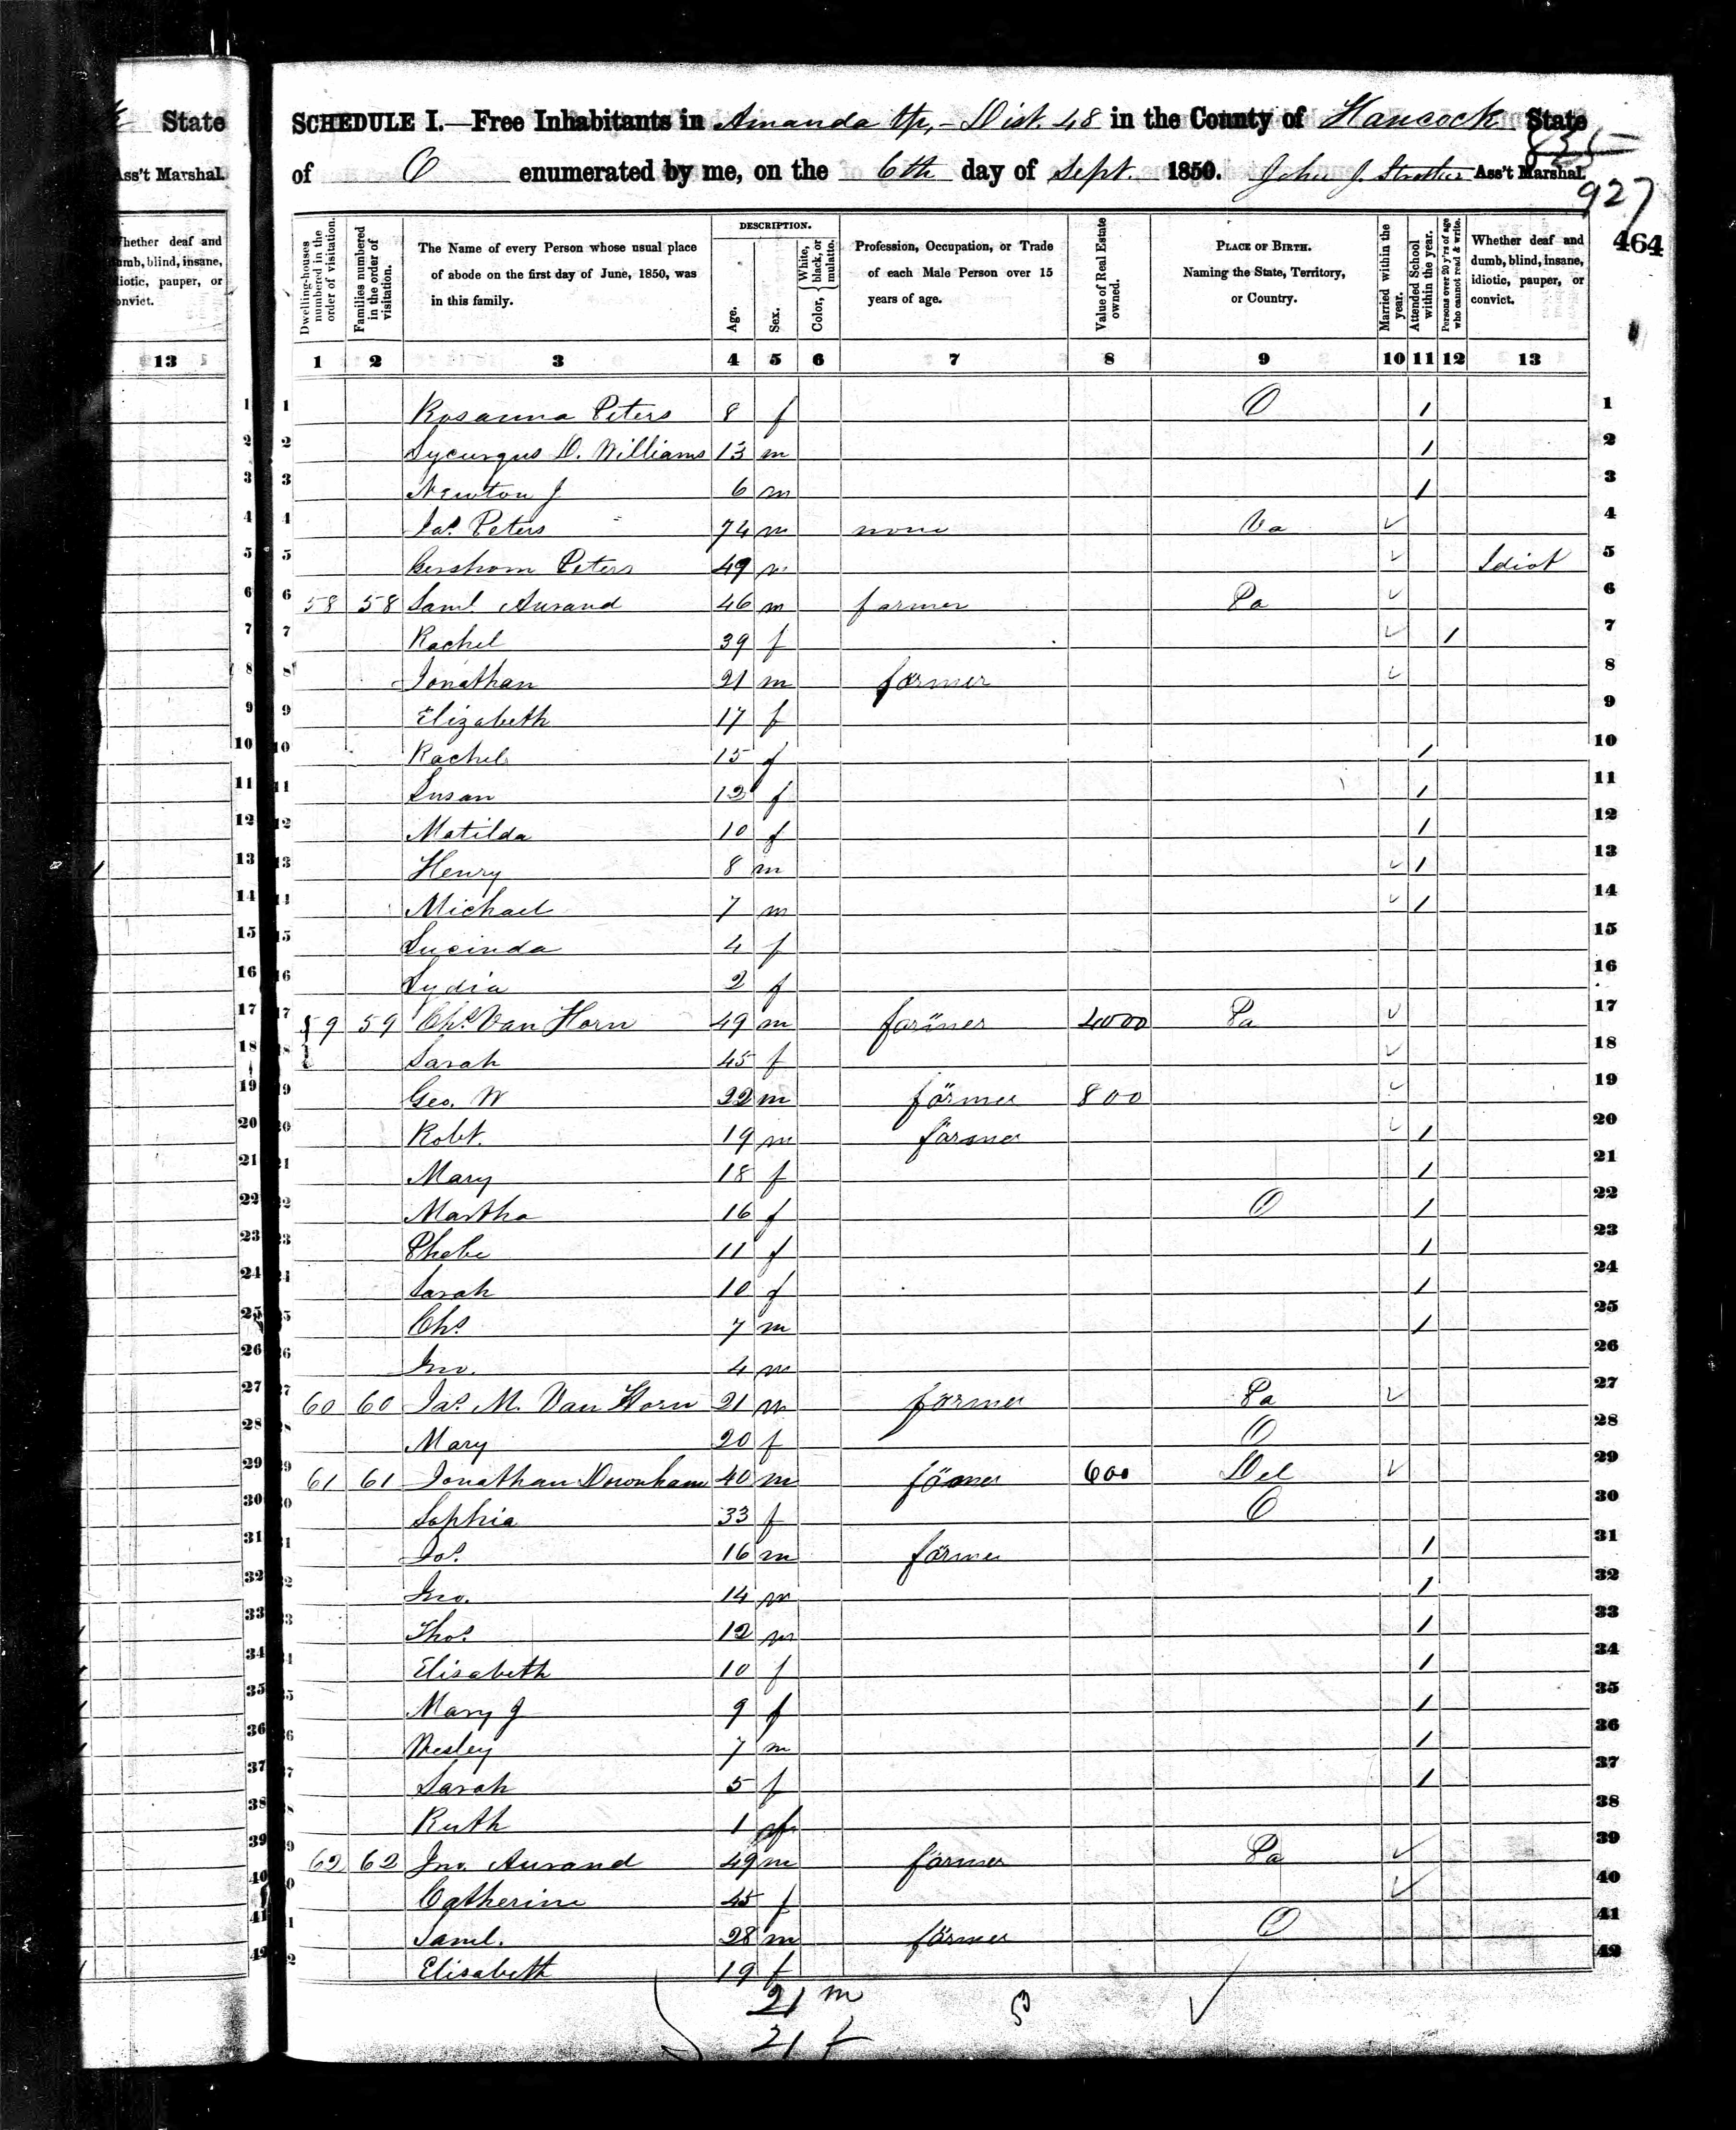 State
Ass't Marshal.
Whether deaf and
dumb, blind, insane,
idiotic, pauper, or
convict.
13
SCHEDULE I.—Free Inhabitants in Amanda tp, - Dist. 48 in the County of Hancock State
of O enumerated by me, on the 6th day of Sept. 1850. John J. Strother Ass't Marshal.
927
464
Dwelling-houses numbered in the order of visitation.
Families numbered in the order of visitation.
The Name of every Person whose usual place of abode on the first day of June, 1850, was in this family.
DESCRIPTION.
Age.
Sex.
Color, { White, black, or mulatto.
Profession, Occupation, or Trade of each Male Person over 15 years of age.
Value of Real Estate owned.
PLACE OF BIRTH. Naming the State, Territory, or Country.
Married within the year.
Attended School within the year.
Persons over 20 y'rs of age who cannot read & write.
Whether deaf and dumb, blind, insane, idiotic, pauper, or convict.
1 2 3 4 5 6 7 8 9 10 11 12 13
1 Rosanna Peters 8 f O 1 1
2 Lycurgus D. Williams 13 m 1 2
3 Newton J 6 m 1 3
4 Jas. Peters 74 m none Va ✓ 4
5 Gershom Peters 49 m ✓ Idiot 5
6 58 58 Saml Aurand 46 m farmer Pa ✓ 6
7 Rachel 39 f ✓ 1 7
8 Jonathan 21 m farmer ✓ 8
9 Elizabeth 17 f 9
10 Rachel 15 f 1 10
11 Susan 12 f 1 11
12 Matilda 10 f 1 12
13 Henry 8 m ✓ 1 13
14 Michael 7 m ✓ 1 14
15 Lucinda 4 f 15
16 Lydia 2 f 16
17 59 59 Chs. Van Horn 49 m farmer 4000 Pa ✓ 17
18 Sarah 45 f ✓ 18
19 Geo. W 22 m farmer 800 ✓ 19
20 Robt. 19 m farmer ✓ 1 20
21 Mary 18 f 1 21
22 Martha 16 f O 1 22
23 Phebe 11 f 1 23
24 Sarah 10 f 1 24
25 Chs. 7 m 1 25
26 Jno. 4 m 26
27 60 60 Jas. M. Van Horn 21 m farmer Pa ✓ 27
28 Mary 20 f O 28
29 61 61 Jonathan Downham 40 m farmer 600 Del ✓ 29
30 Sophia 33 f O 30
31 Jos. 16 m farmer 1 31
32 Jno. 14 m 1 32
33 Thos. 12 m 1 33
34 Elisabeth 10 f 1 34
35 Mary J 9 f 1 35
36 Wesley 7 m 1 36
37 Sarah 5 f 1 37
38 Ruth 1 f 38
39 62 62 Jno. Aurand 49 m farmer Pa ✓ 39
40 Catherine 45 f ✓ 40
41 Saml. 28 m farmer O 41
42 Elisabeth 19 f 42
21 m
21 f